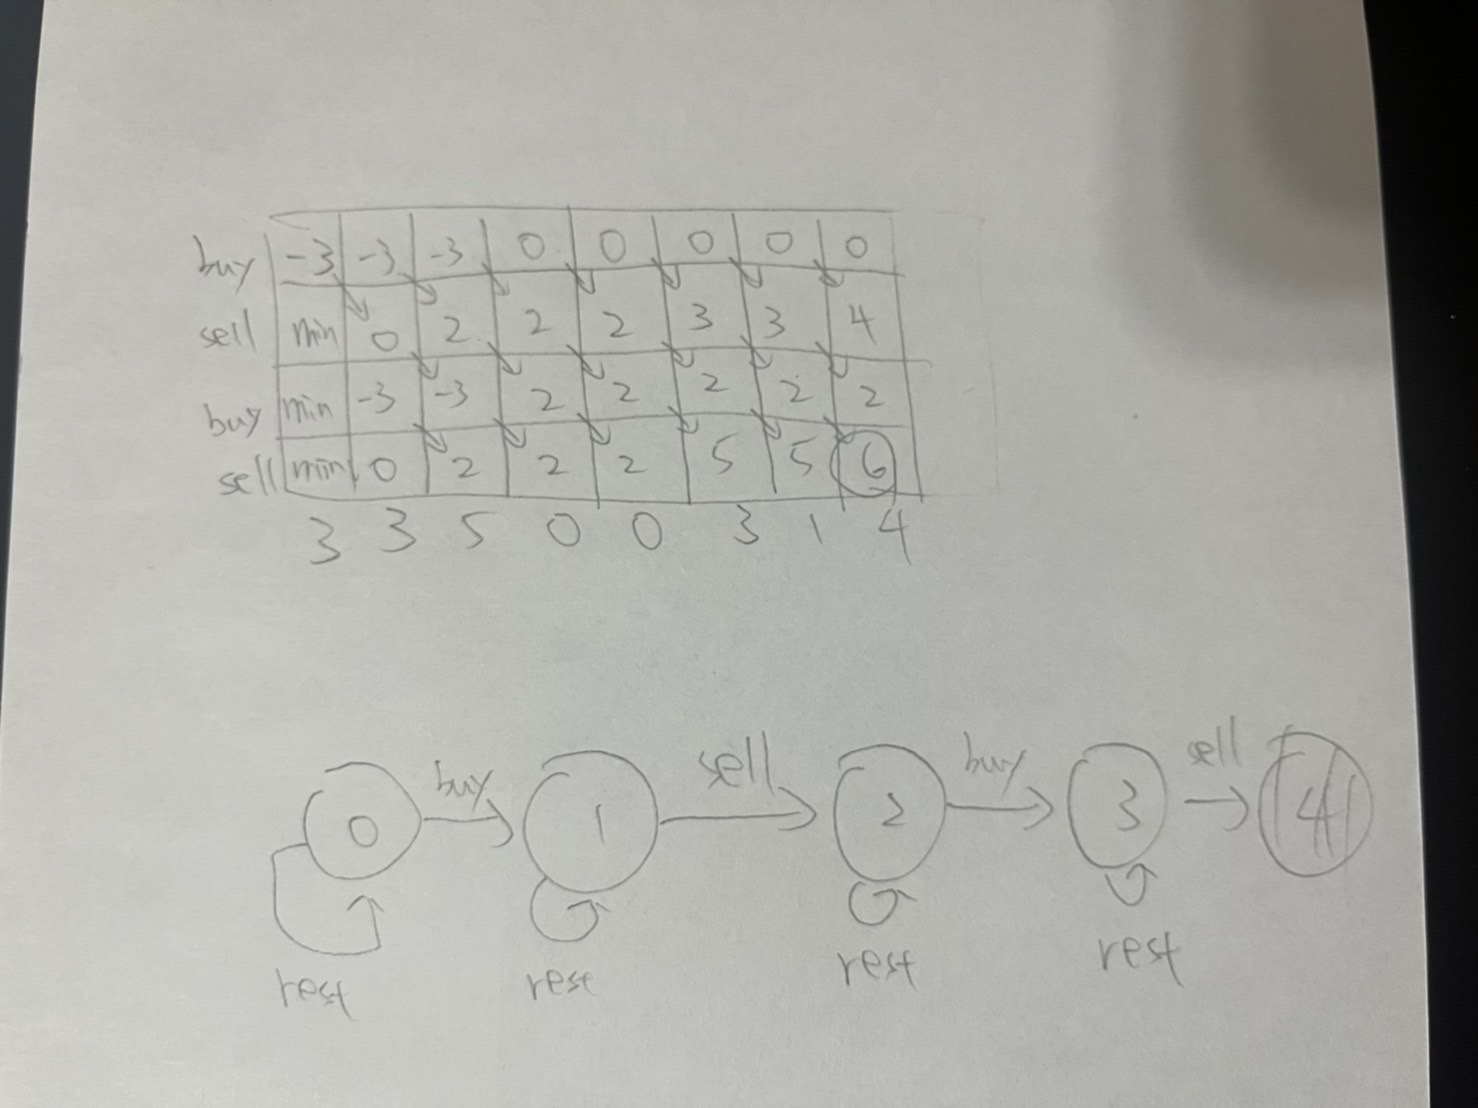 buy -3 -3 -3 0 0 0 0 0
sell min 0 2 2 2 3 3 4
buy min -3 -3 2 2 2 2 2
sell min 0 2 2 2 5 5 6
3 3 5 0 0 3 1 4
buy sell buy sell
0 1 2 3 4
rest rest rest rest